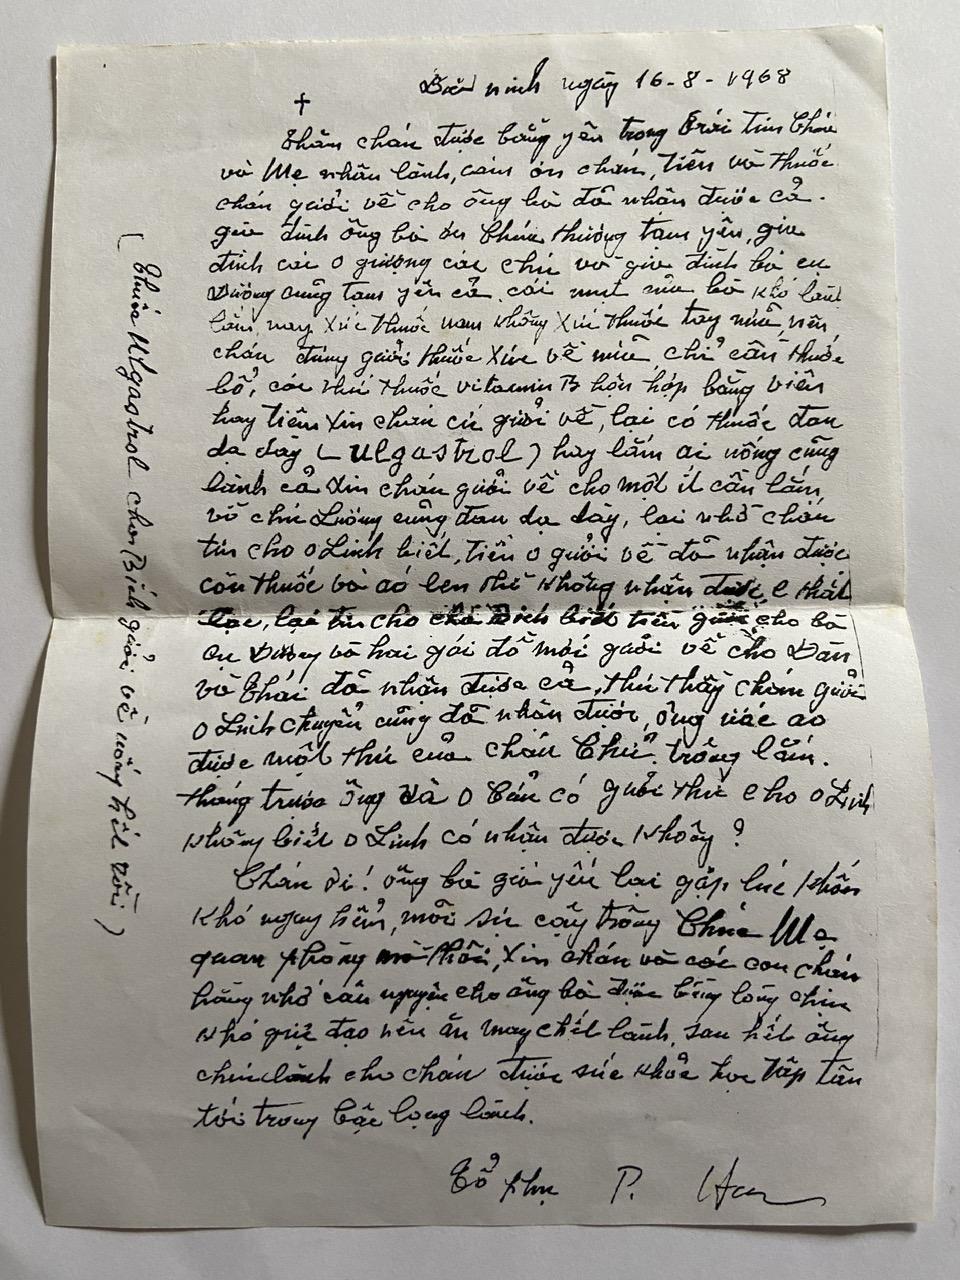 Bắc ninh ngày 16-8-1968
✝
Thăm cháu được bằng yên trong Trái Tim Chúa
và Mẹ nhân lành, cám ơn cháu, tiền và thuốc
cháu gưởi về cho ông bà đã nhận được cả.
gia đình ông bà ơn Chúa thương tạm yên, gia
đình các o giượng các chú và gia đình bà cu
Dương cũng tạm yên cả. cái mụt của bà khó lành
lắm, nay xức thuốc nam không xức thuốc tay nữa, nên
cháu đừng gưởi thuốc xức về nữa chỉ cần thuốc
bổ, các thứ thuốc vitamin B hỗn hợp bằng viên
hay tiêm xin cháu cứ gưởi về, lại có thuốc đau
dạ dày (Ulgastrol) hay lắm ai uống cũng
lành cả xin cháu gưởi về cho một ít cần lắm,
vì chú Lường cũng đau dạ dày, lại nhờ cháu
tin cho o Linh biết, tiền o gưởi về đã nhận được
còn thuốc và áo len thì không nhận được thất
lạc, lại tin cho biết tiền gưởi cho bà
cu Dương và hai gói đồ mới gưởi về cho Đàn
và Thái đã nhận được cả, thư thầy cháu gưởi
o Linh chuyển cũng đã nhận được, ông ước ao
được một thư của cháu Chử trông lắm.
tháng trước ông và o Cẩn có gưởi thư cho o Linh
không biết o Linh có nhận được không?
Cháu ơi! ông bà già yếu lại gặp lúc khốn
khó nguy hiểm, mỗi sự cậy trông Chúa Mẹ
quan phòng thôi, xin cháu và các con cháu
hằng nhớ cầu nguyện cho ông bà được bằng lòng chịu
khó giữ đạo nên ăn mày chết lành, sau hết ông
chúc lành cho cháu được sức khỏe học tập tấn
tới trong bậc lọng lành.
Tổ phụ P.
(Thuốc Ulgastrol cho Bích gưởi về uống hết rồi)